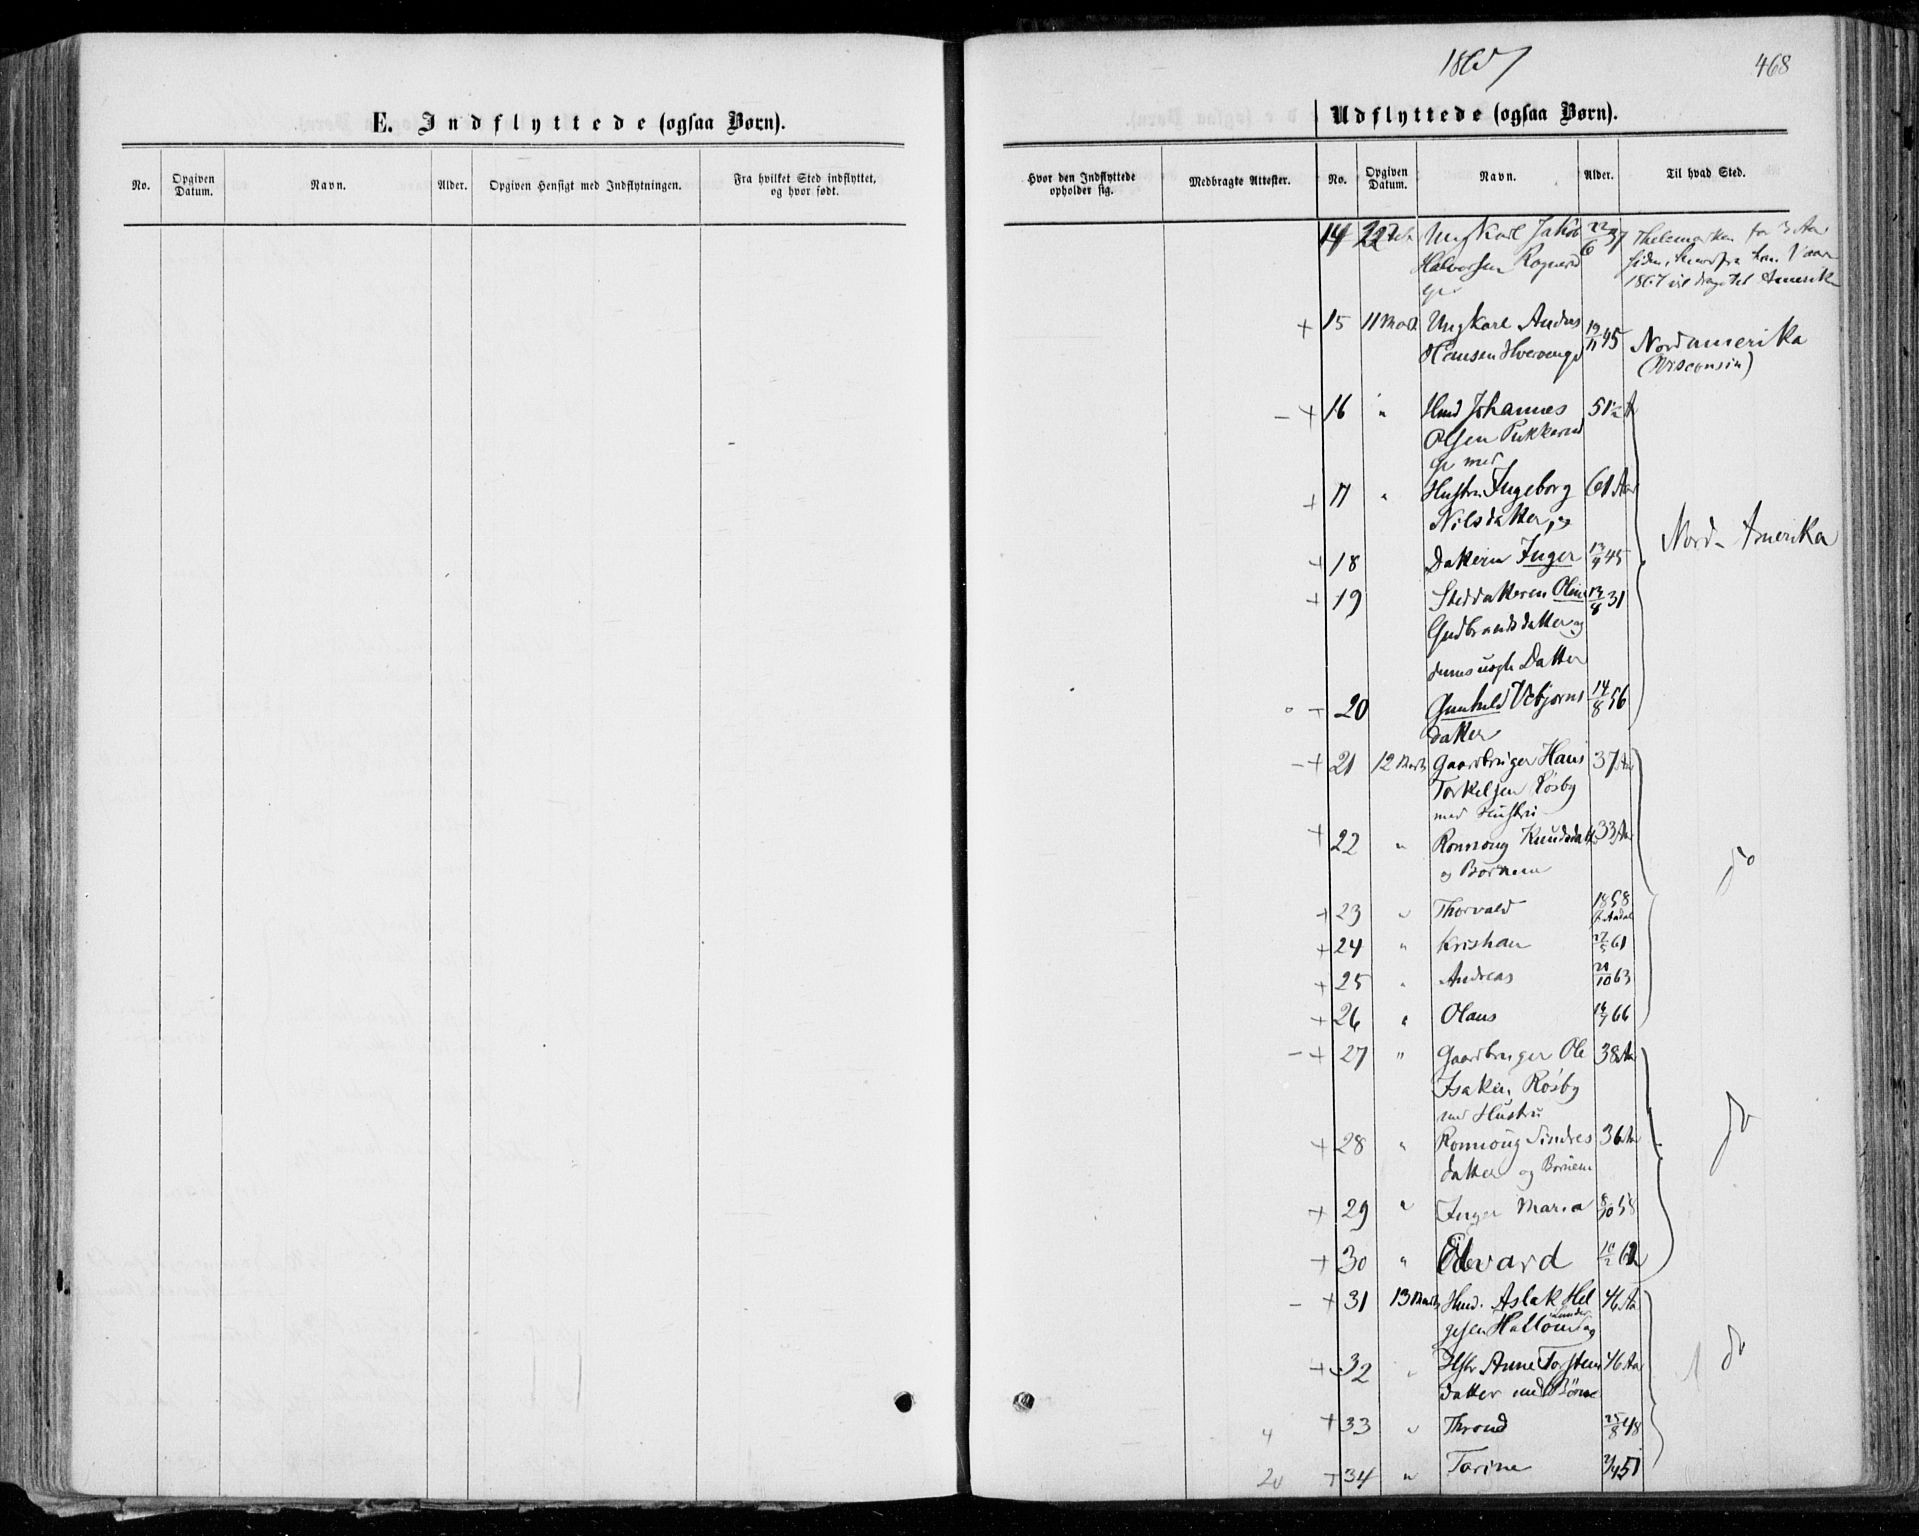 1867
468
E. Indflyttede (ogsaa Børn).
No.
Opgiven Datum.
Navn.
Alder.
Opgiven Hensigt med Indflytningen.
Fra hvilket Sted indflyttet, og hvor født.
Udflyttede (ogsaa Børn).
Hvor den Indflyttede opholder sig.
Medbragte Attester.
No.
Opgiven Datum.
Navn.
Alder.
Til hvad Sted.
14 22 Feb Ungkarl Jakob 22/6 37 Thelemarken for 3 Aar
Halvorsen
1867 vil drage til Amerika
+ 15 11 Marts Ungkarl Andres 19/11 45 Nordamerika
Hansen (Wisconsin)
- + 16 " Huusmd Johannes 51 1/2 A
Olsen
med
+ 17 " Hustru Ingeborg 61 Aar
Nilsdatter, og
Nord-Amerika
+ 18 Datteren Inger 13/9 45
+ 19 Steddatteren Oline 13/8 31
Gudbrandsdatter og
dennes uægte Datter
+ 20 Gunhild Vebjørns 14/8 56
datter
- + 21 12 Marts Gaardbruger Hans 37 Aar
Torkelsen Røsby
med Hustru
+ 22 " Ronnoug Knudsdatter 33 Aar
og Børnene
do
+ 23 " Thorvald 1858
+ 24 " Kristian 27/5 61
+ 25 " Andreas 20/10 63
+ 26 " Olaus 14/7 66
- + 27 " Gaardbruger Ole 38 Aar
Isaksen Røsby
med Hustru
do
+ 28 " Ronnoug Sindres 36 Aar
datter og Børnene
+ 29 " Inger Maria 8/10 58
+ 30 " Edvard
- + 31 13 Marts Huusmd. Aslak Hel 46 Aar
gesen
+ 32 " Hstr Anne Torstens 46 Aar do
datter med Børn
4 + 33 " Thrond 25/8 48
20 + 34 " Torine 51